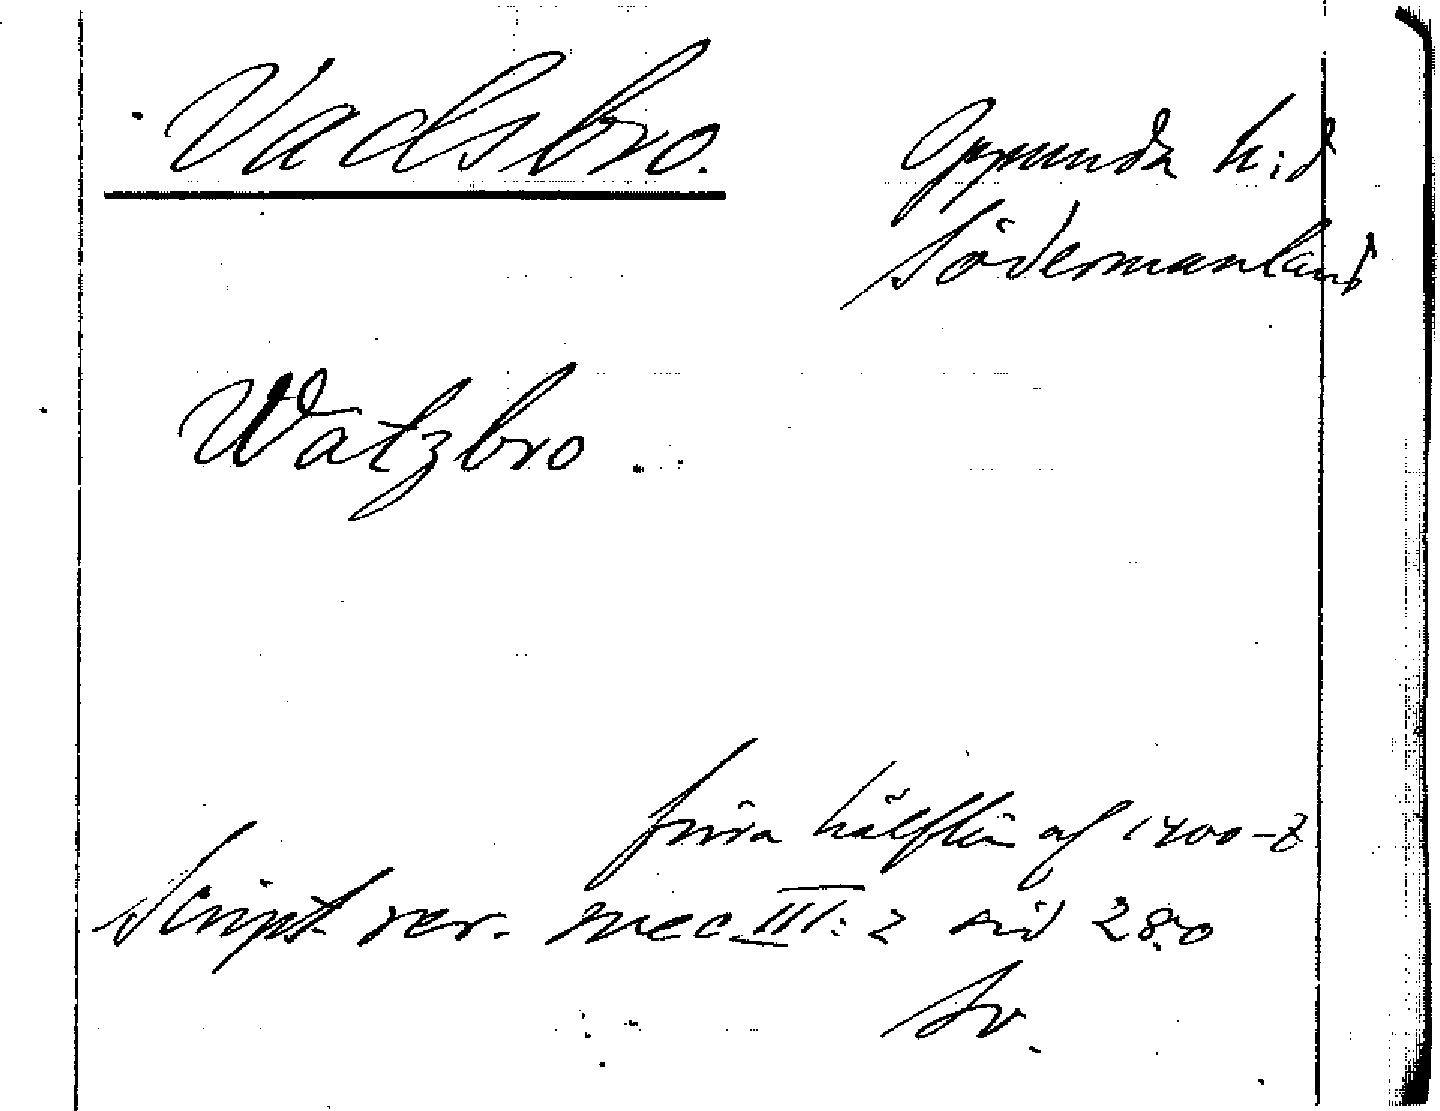 Vadsbro.
Oppunda h:d
Södermanland
Watzbro
förra hälften af 1400-t
Script. rer. svec III: 2 sid 280
Sv.